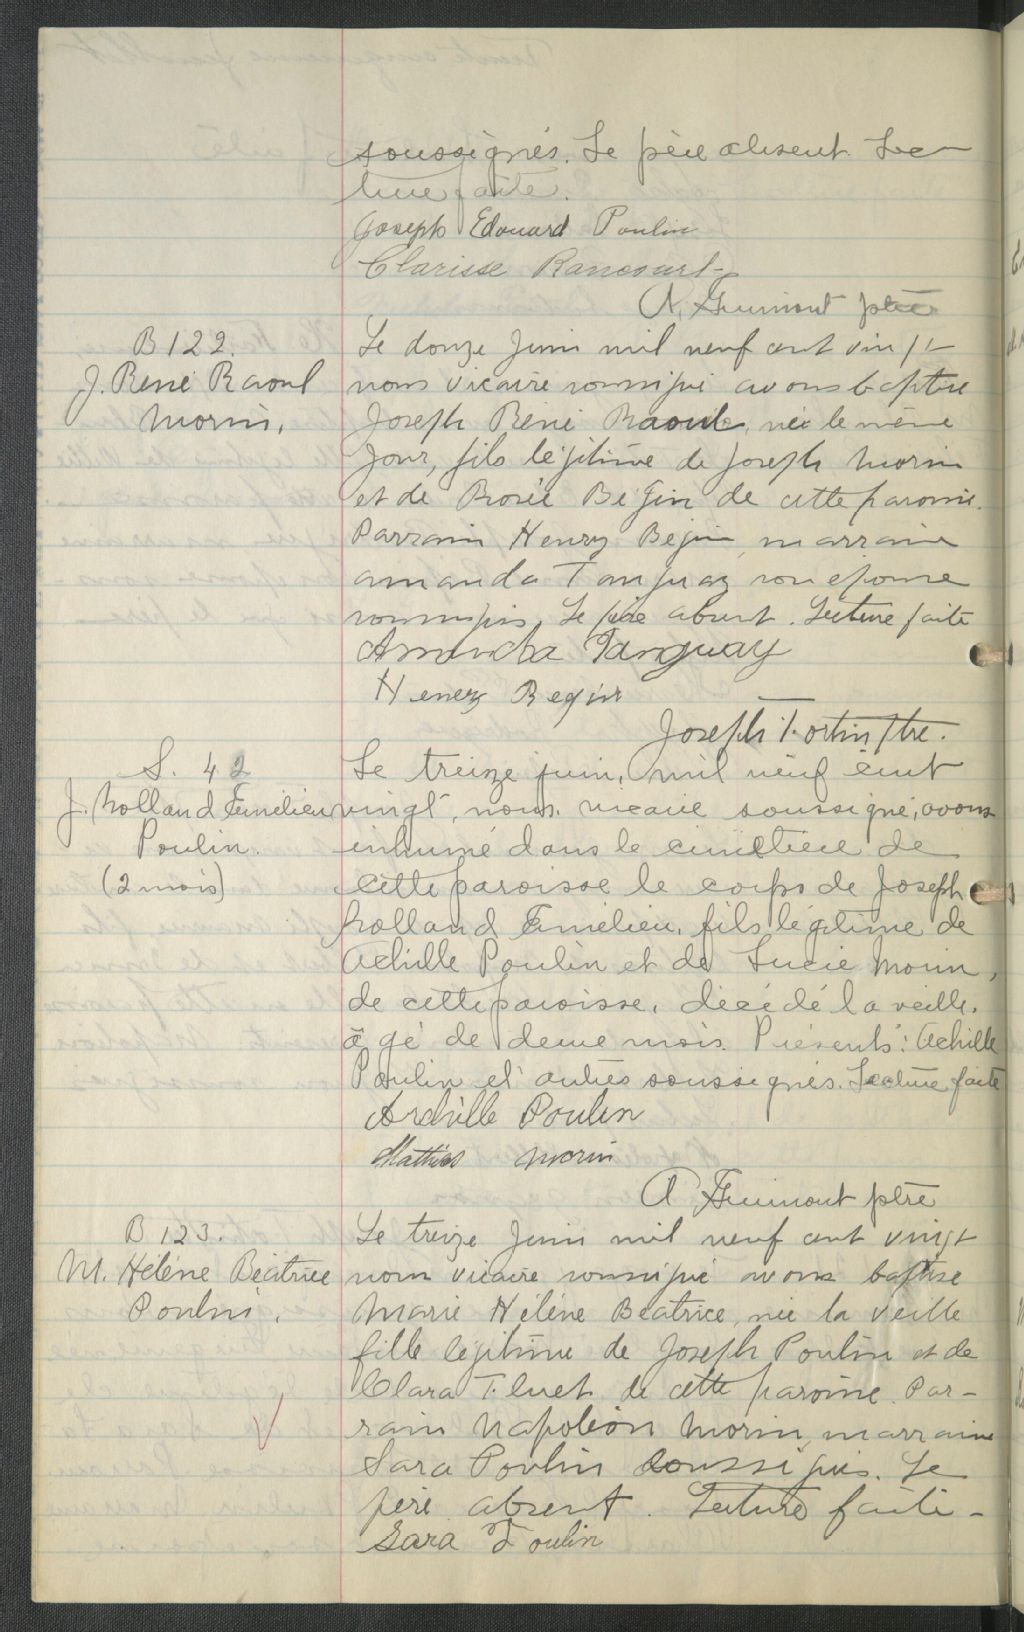 soussignés. Le père absent. Lec-
ture faite.
Joseph Edouard Poulin
Clarisse Rancourt
A. Guimont ptre
B 122.
J. René Raoul
Morin,
Le douze Juin mil neuf cent vingt
nous vicaire soussigné avons baptisé
Joseph René Raoul, né le même
Jour, fils légitime de Joseph Morin
et de Rosée Bégin de cette paroisse.
Parrain Henry Bégin, marraine
Amanda Tanguay son épouse
soussignés. Le père absent. Lecture faite
Amanda Tanguay
Henery Begin
Joseph Fortin Ptre.
S. 42
J. Rolland Emélieu
Poulin.
(2 mois)
Le treize juin, mil neuf cent
vingt, nous, vicaire soussigné, avons
inhumé dans le cimetière de
cette paroisse le corps de Joseph
Rolland Emélieu, fils légitime de
Achille Poulin et de Lucie Morin,
de cette paroisse, décédé la veille,
âgé de deux mois. Présents: Achille
Poulin et autres soussignés. Lecture faite
Archille Poulin
Mathias Morin
A Guimont ptre
B 123.
M. Hélène Béatrice
Poulin.
Le treize Juin mil neuf cent vingt
nous vicaire soussigné avons baptisé
Marie Hélène Béatrice, née la veille
fille légitime de Joseph Poulin et de
Clara de cette paroisse. Par-
rain Napoléon Morin, marraine
Sara Poulin soussignés. Le
père absent. Lecture faite -
Sara Poulin